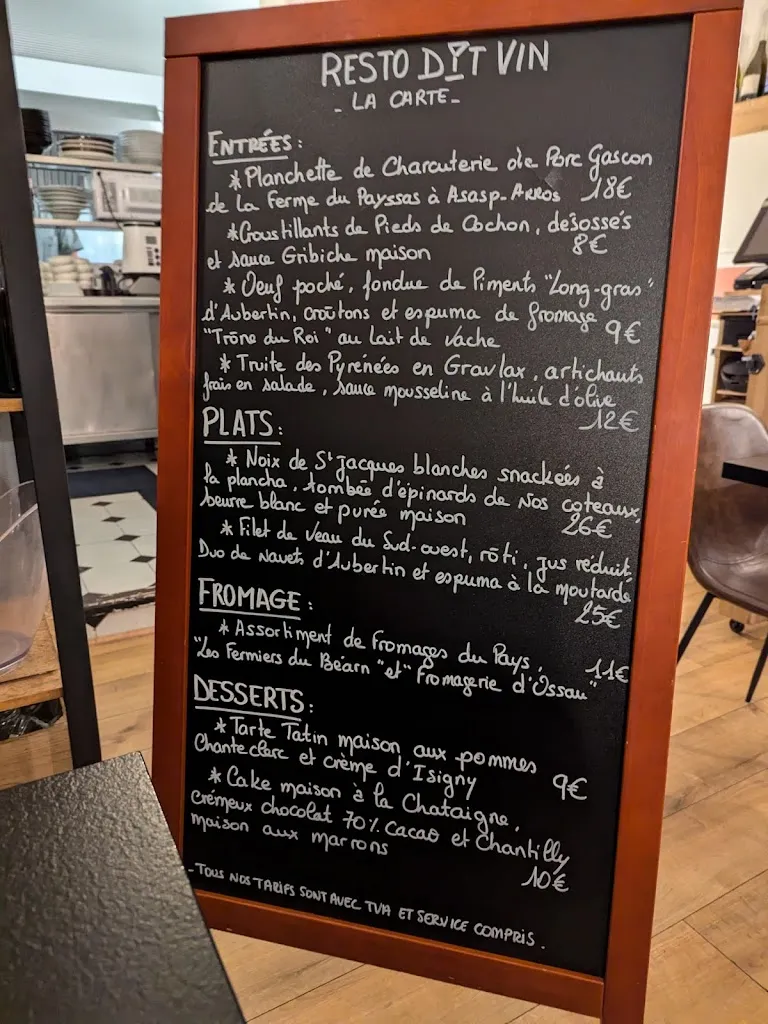 RESTO DIT VIN
- LA CARTE -
ENTRÉES :
* Planchette de Charcuterie de Porc Gascon
de La Ferme du Payssas à Asasp-Arros 18€
* Croustillants de Pieds de Cochon, désossés
et sauce Gribiche maison 8€
* Oeuf poché, fondue de Piments "Long-gras"
d'Aubertin, croûtons et espuma de fromage
"Trône du Roi" au lait de vache 9€
* Truite des Pyrénées en Gravlax, artichauts
frais en salade, sauce mousseline à l'huile d'olive
12€
PLATS :
* Noix de St Jacques blanches snackées à
la plancha, tombée d'épinards de nos coteaux,
beurre blanc et purée maison 26€
* Filet de Veau du Sud-ouest, rôti, jus réduit,
Duo de navets d'Aubertin et espuma à la moutarde
25€
FROMAGE :
* Assortiment de fromages du Pays, 11€
"Les Fermiers du Béarn" et "Fromagerie d'Ossau"
DESSERTS :
* Tarte Tatin maison aux pommes
Chanteclerc et crème d'Isigny 9€
* Cake maison à la Chataigne,
crémeux chocolat 70% cacao et Chantilly
maison aux marrons 10€
- TOUS NOS TARIFS SONT AVEC TVA ET SERVICE COMPRIS .